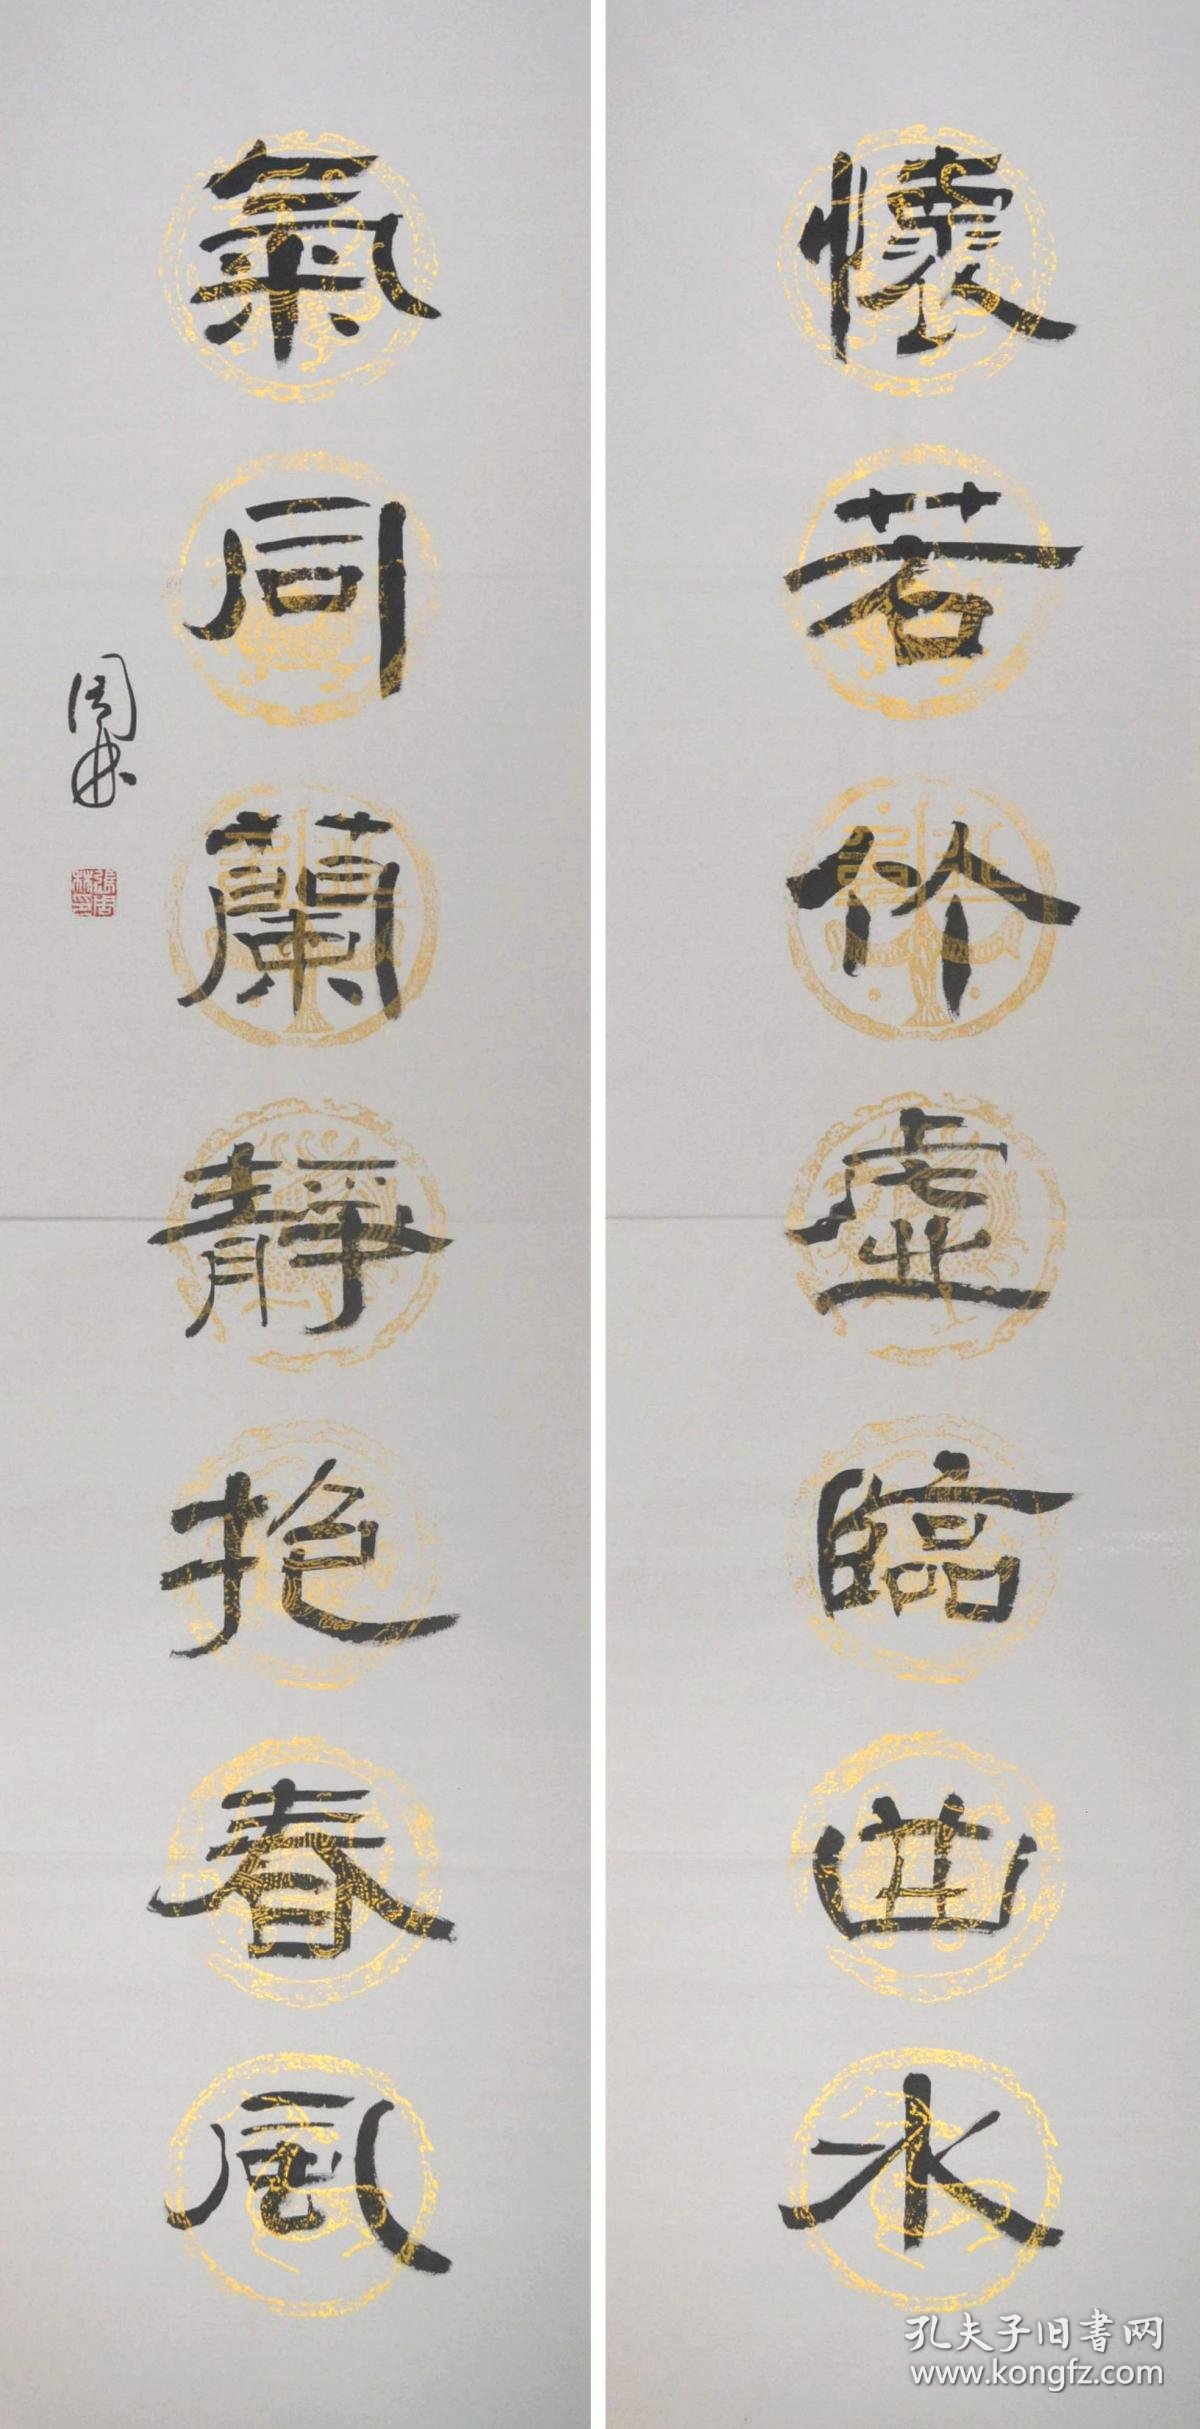 懷若竹虛臨曲水
氣同蘭靜抱春風
周林
張周林印
孔夫子旧書网
www.kongfz.com